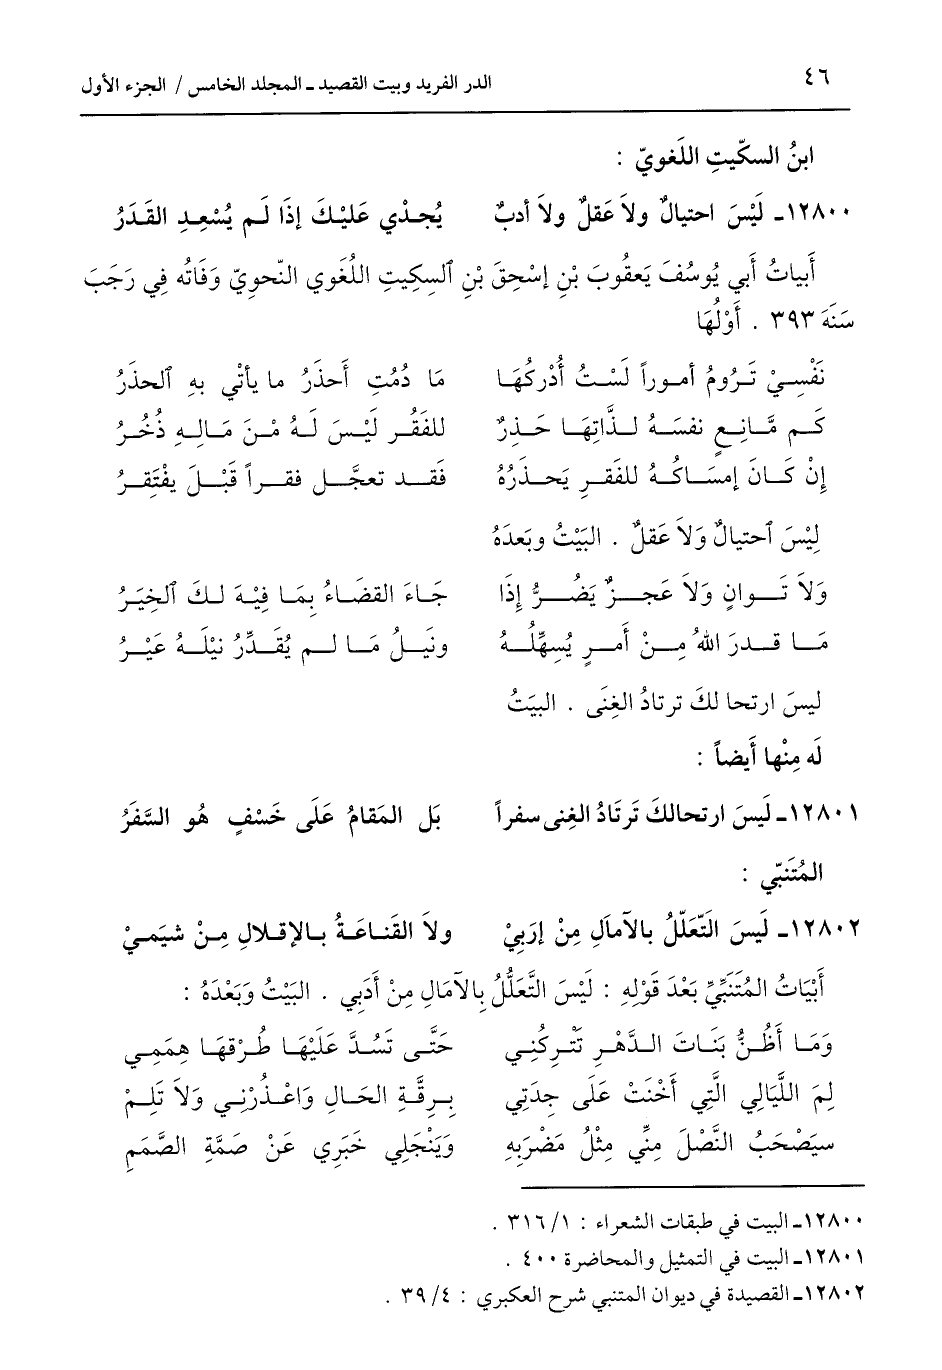 ٤٦ الدر الفريد وبيت القصيد ـ المجلد الخامس / الجزء الأول
ابنُ السكّيتِ اللَغويّ :
١٢٨٠٠ـ لَيْسَ احتيالٌ ولاَ عَقلٌ ولاَ أدبٌ يُجْدْي عَليْكَ إذَا لَم يُسْعِدِ القَدَرُ
أَبياتُ أَبي يُوسُفَ يَعقُوبَ بْنِ إسْحقَ بْنِ ٱلسِكِيتِ اللُغَوي النَّحويّ وَفَاتُه فِي رَجَبَ
سَنَةَ ٣٩٣ . أَوْلُهَا
نَفْسِيْ تَرُومُ أموراً لَسْتُ أُدْركُهَا مَا دُمْتِ أَحذَرُ ما يأتْي بهِ ٱلحذَرُ
كَم مَّانِعٍ نفسَهُ لذَّاتِهَا حَذِرٌ للفَقْرِ لَيْسَ لَهُ مْنَ مَالِهِ ذُخُرُ
إنْ كَانَ إمسَاكهُ للفَقرِ يَحذَرُهُ فَقد تعجَّل فقراً قَبْلَ يفْتَقرُ
لَيْسَ ٱحتيالٌ وَلاَ عَقلٌ . البَيْتُ وبَعدَهُ
وَلاَ تَوانٍ وَلاَ عَجزٌ يَضُرُّ إذَا جَاءَ القضَاءُ بمَا فِيْهَ لكَ ٱلخيَرُ
مَا قدرَ اللهُ مِنْ أَمرٍ يُسهِّلهُ ونَيلُ مَا لم يُقَدِّرُ نيْلَهُ عَيْرُ
ليسَ ارتحا لكَ ترتادُ الغِنَى . البيَتُ
لَه مِنْها أَيضاً :
١٢٨٠١ـ لَيسَ ارتحالكَ تَرتَادُ الغِنى سفراً بَل المَقامُ عَلَى خَسْفٍ هُو السَّفَرُ
المُتَنبّي :
١٢٨٠٢ـ لَيسَ التَّعلّلُ بالآمالِ مِنْ إرَبِيْ ولاَ القَناعَةُ بالإقلالِ مِنْ شيَمِيْ
أَبْيَاتُ المُتَنَبِّيِّ بَعْدَ قَوْلِهِ : لَيْسَ التَّعَلُّلُ بِالآمَالِ مِنْ أَدَبي . البَيْتُ وَبَعْدَهُ :
وَمَا أَظُنُّ بَنَاتَ الدَّهْرِ تَتْركُنِي حَتَّى تَسُدَّ عَلَيْهَا طُرْقهَا هِمَمِي
لِمَ اللَّيَالِي الَّتِي أَخْنَتْ عَلَى جِدَتِي بِرِقَّةِ الحَالِ وَاعْذُرْنِي وَلاَ تَلِمْ
سيَصْحَبُ النَّصْلَ مِنِّي مِثْلُ مَضْرَبِهِ وَيَنْجَلِي خَبَرِي عَنْ صَمَّةِ الصَّمَمِ
١٢٨٠٠ـ البيت في طبقات الشعراء : ٣١٦/١ .
١٢٨٠١ـ البيت في التمثيل والمحاضرة ٤٠٠ .
١٢٨٠٢ـ القصيدة في ديوان المتنبي شرح العكبري : ٣٩/٤ .